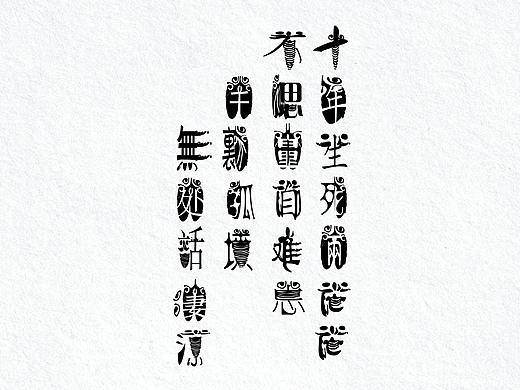 十年生死兩茫茫
不思量自难忘
千里孤墳
無处話淒涼